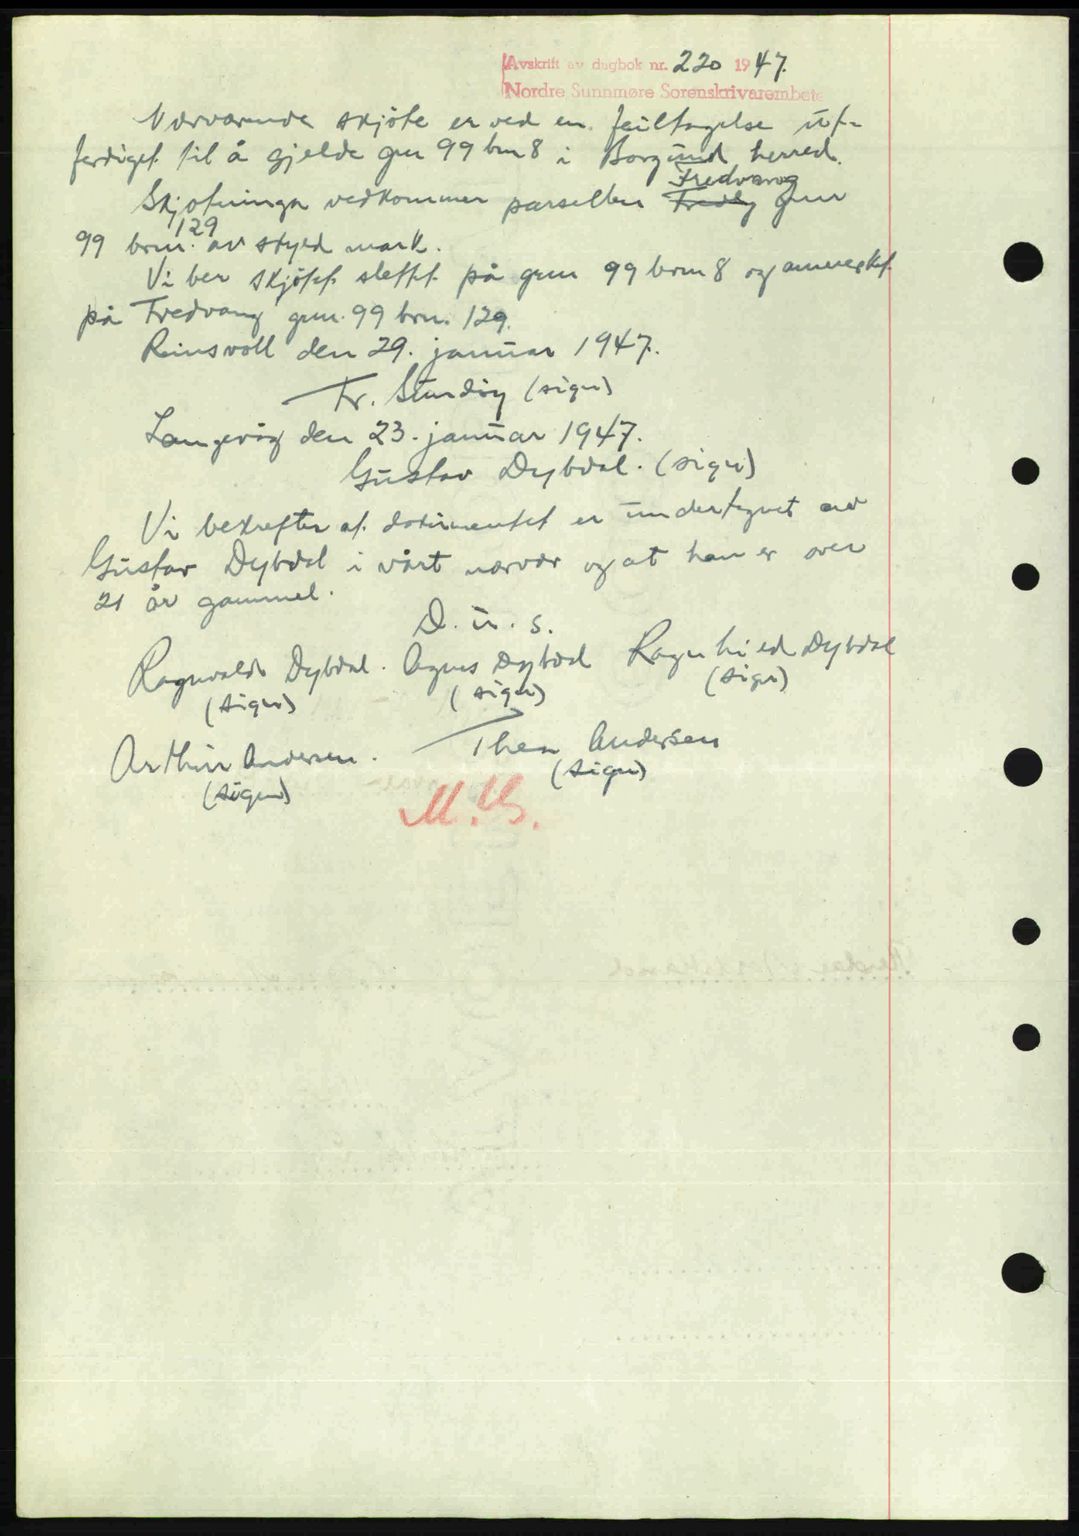 Avskrift av dagbok nr. 220 1947.
Nordre Sunnmøre Sorenskrivarembete
Nærværende skjøte er ved en feiltagelse ut-
ferdiget til å gjelde gnr 99 bnr 8 i Borgund herred.
Fredvang
Skjøtninga vedkommer parsellen Fredly gnr
129
99 bnr. av skyld mark.
Vi ber skjøtet slettet på gnr 99 bnr 8 og anmerket
på Fredvang gnr. 99 bnr. 129.
Reinsvoll den 29. januar 1947.
Fr. (sign)
Langevåg den 23. januar 1947.
Gustav Dybdal. (sign)
Vi bekrefter at dokumentet er undertegnet av
Gustav Dybdal i vårt nærvær og at han er over
21 år gammel.
D. u. s.
Ragnvald Dybdal. Agnes Dybdal Ragnhild Dybdal
(sign) (sign) (sign)
Arthur Andersen. Thea Andersen
(sign) (sign)